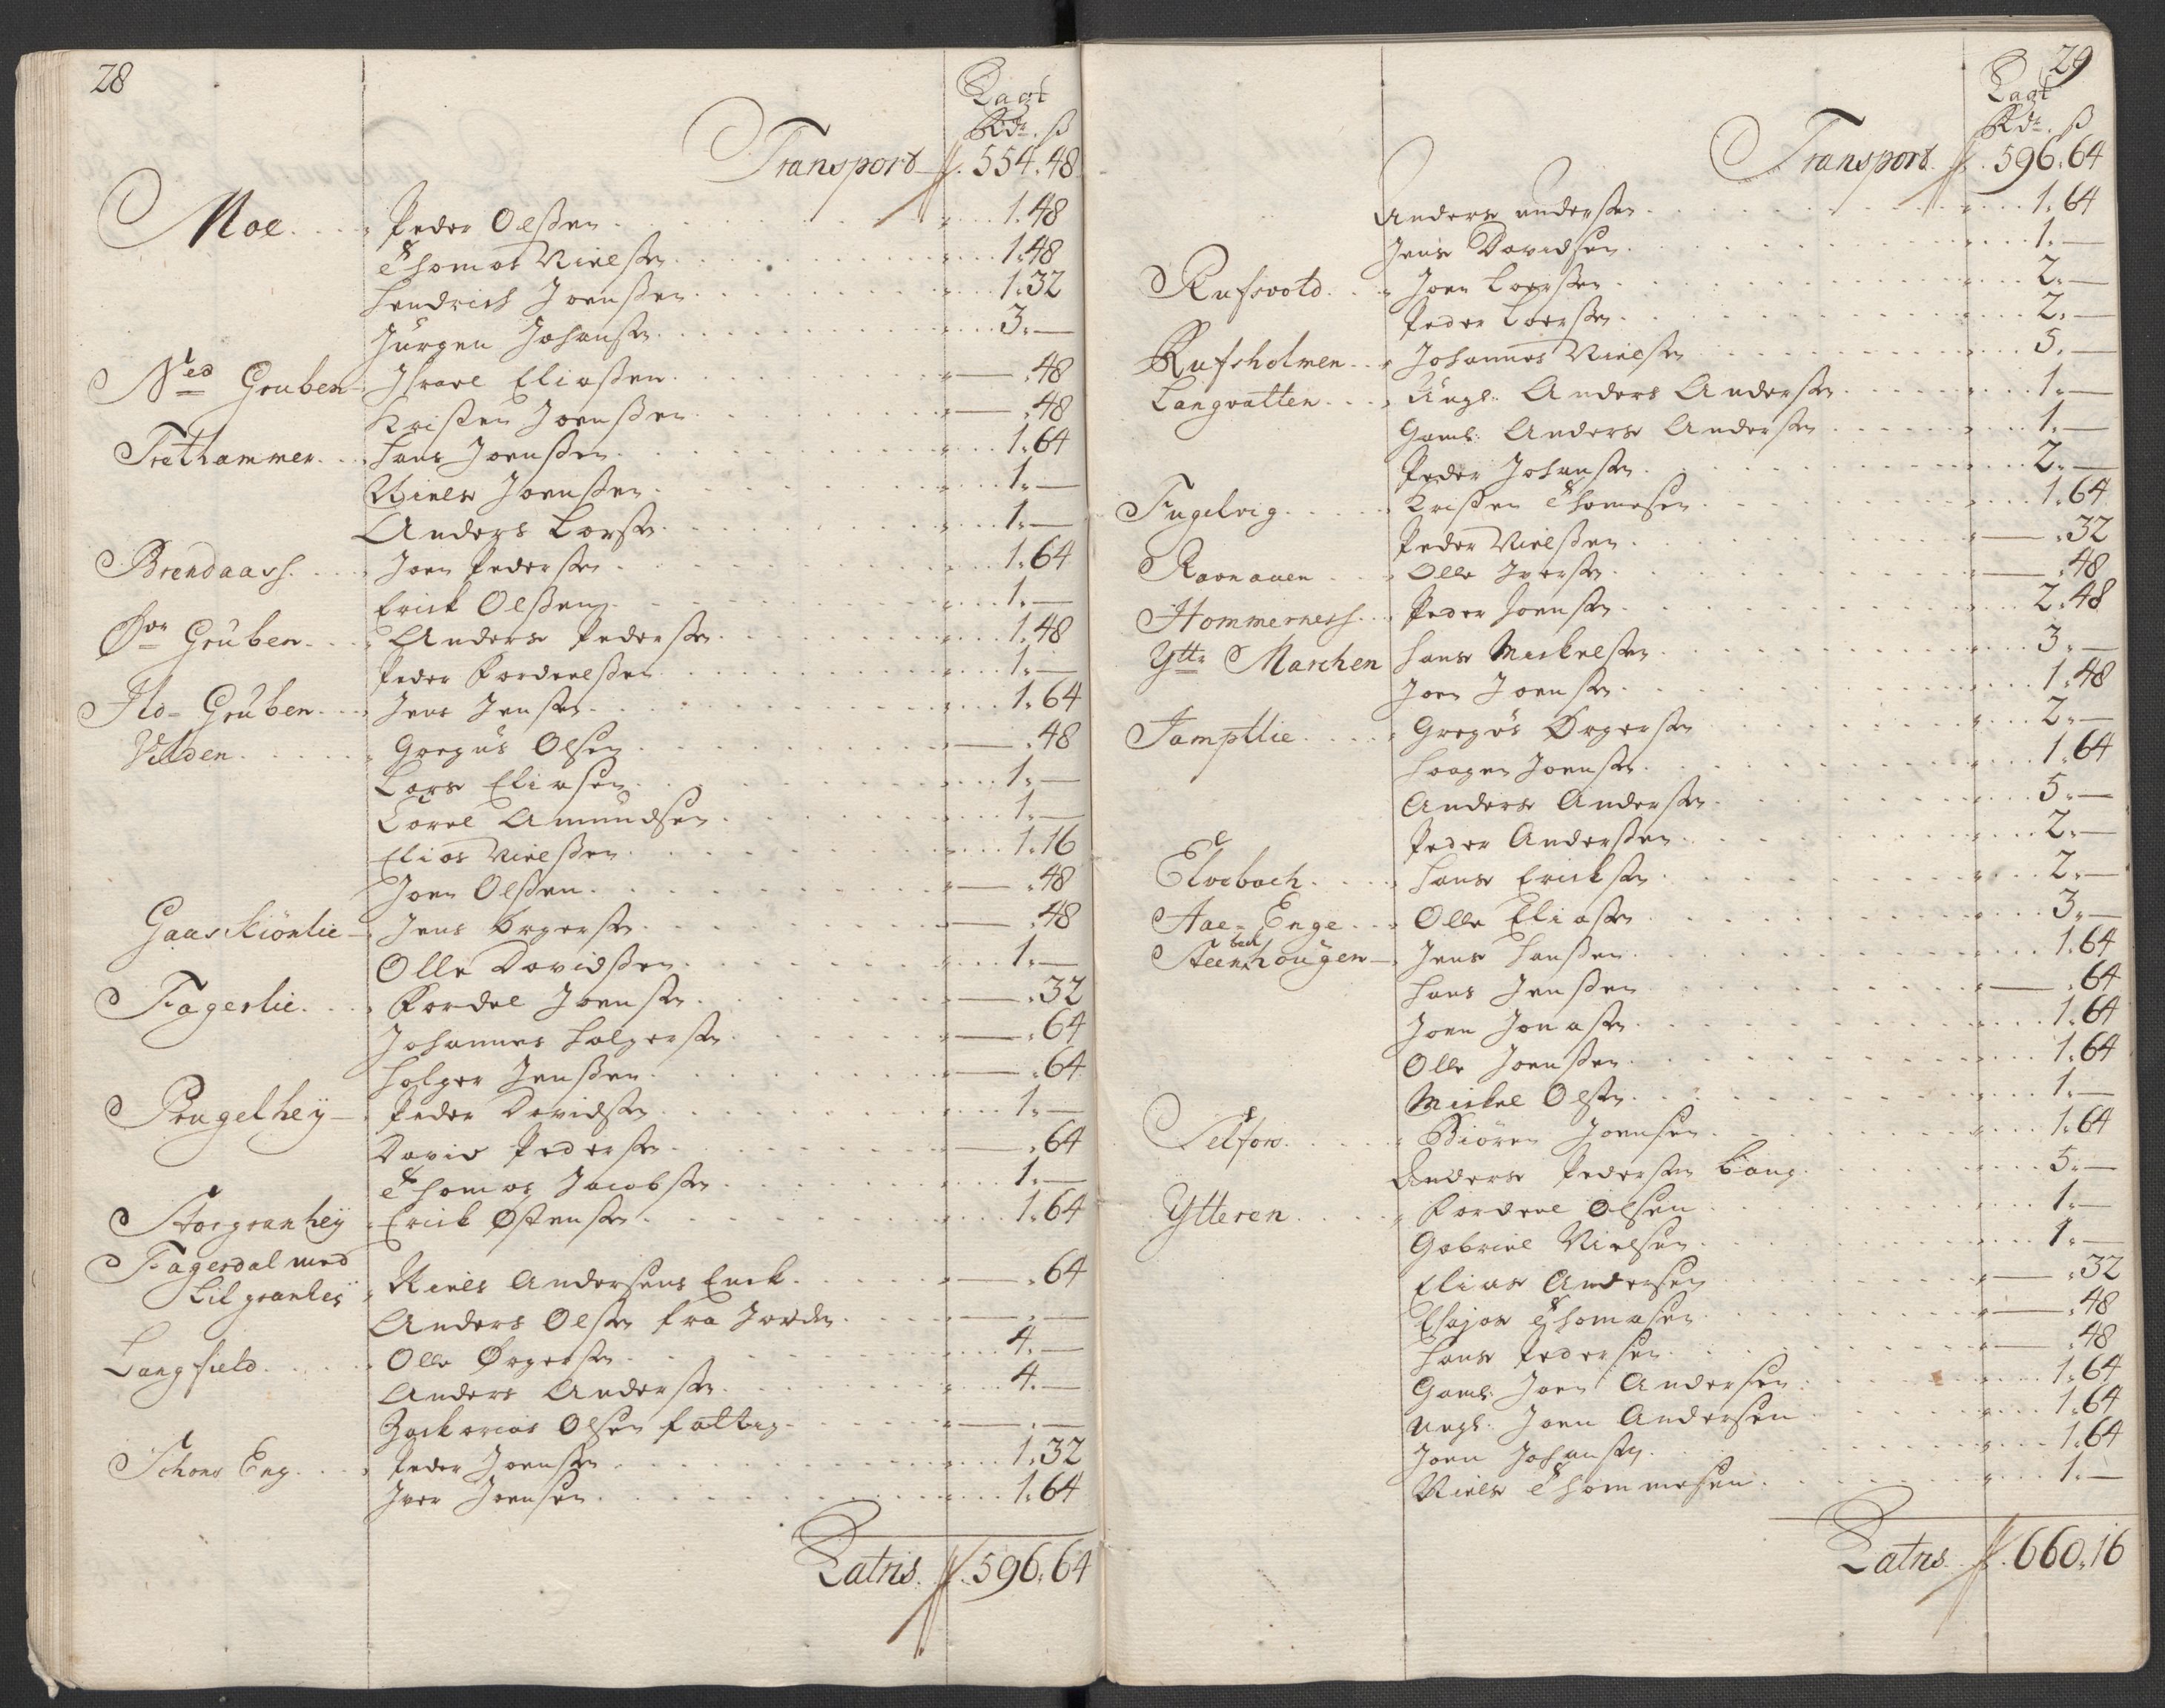 28
Lagt
Rdr. ß
Transport 554.48
Moe Peder Olßen 1.48
Thomas Nielßen 1.48
Hendrich Joenßen 1.32
Jürgen Johansen 3.—
Ned Gruben Israel Eliaßen —.48
Kristen Joenßen —.48
Trethammer Hans Joenßen 1.64
Niels Joenßen 1.—
Anders Larsen 1.—
Brendaass Joen Pederßen 1.64
Erick Olßen 1.—
Øvr Gruben Anders Pederßen 1.48
Peder Fordeelßen 1.—
Ild-Gruben Jens Jensen 1.64
Vilden Gregus Olsen —.48
Lars Eliasen 1.—
Carel Amundsen 1.—
Elias Nielßen 1.16
Joen Olßen —.48
Gaaskiönlie Jens Ørgersen —.48
Olle Davidßen 1.—
Fagerlie Fordel Joensen —.32
Johannes Holgersen —.64
Holger Jenßen —.64
Prugelhey Peder Davidsen 1.—
David Pedersen —.64
Thomas Jacobsen 1.—
Storgranhey Erick Østensen 1.64
Fagerdal med
Lilgranhey Niels Andersens Enck —.64
Anders Olsen fra Jorden —.—
Langfield Olle Ørgersen 4.—
Anders Andersen 4.—
Zackarias Olsen fattig —.—
Schons Eng Peder Joensen 1.32
Iver Joensen 1.64
Latris 596.64
29
Lagt
Rdr. ß
Transport 596.64
Anders Andersen 1.64
Jens Davidsen 1.—
Rufsvold Joen Larsen 2.—
Peder Larsen 2.—
Rufsholmen Johannes Nielsen 5.—
Langvatten Ungl. Anders Andersen 1.—
Gaml. Anders Andersen 1.—
Peder Johansen 2.—
Fugelvig Kristen Thomesen 1.64
Peder Nielßen —.32
Ravnauen Olle Iversen —.48
Hommerness Peder Joensen 2.48
Yttr Marchen Hans Mickelsen 3.—
Joen Joensen 1.48
Jamptlie Gregus Ørgersen 2.—
Haagen Joensen 1.64
Anders Andersen 5.—
Peder Anderßen 2.—
Elvebach Hans Ericksen 2.—
Aae-Enge Olle Eliasen 3.—
Steenbechhougen Jens Hanßen 1.64
Hans Jenßen —.64
Joen Jonasen 1.64
Olle Joenßen 1.64
Mickel Olsen 1.—
Selfors Biören Joensen 1.64
Anders Pedersen Bang 5.—
Ytteren Fordeel Olsen 1.—
Gabriel Nielsen 1.—
Elias Andersen —.32
Esajas Thomasen —.48
Hans Pedersen —.48
Gaml. Joen Andersen 1.64
Ungl. Joen Andersen 1.64
Joen Johansen 1.64
Niels Thommesen 1.—
Latris 660.16